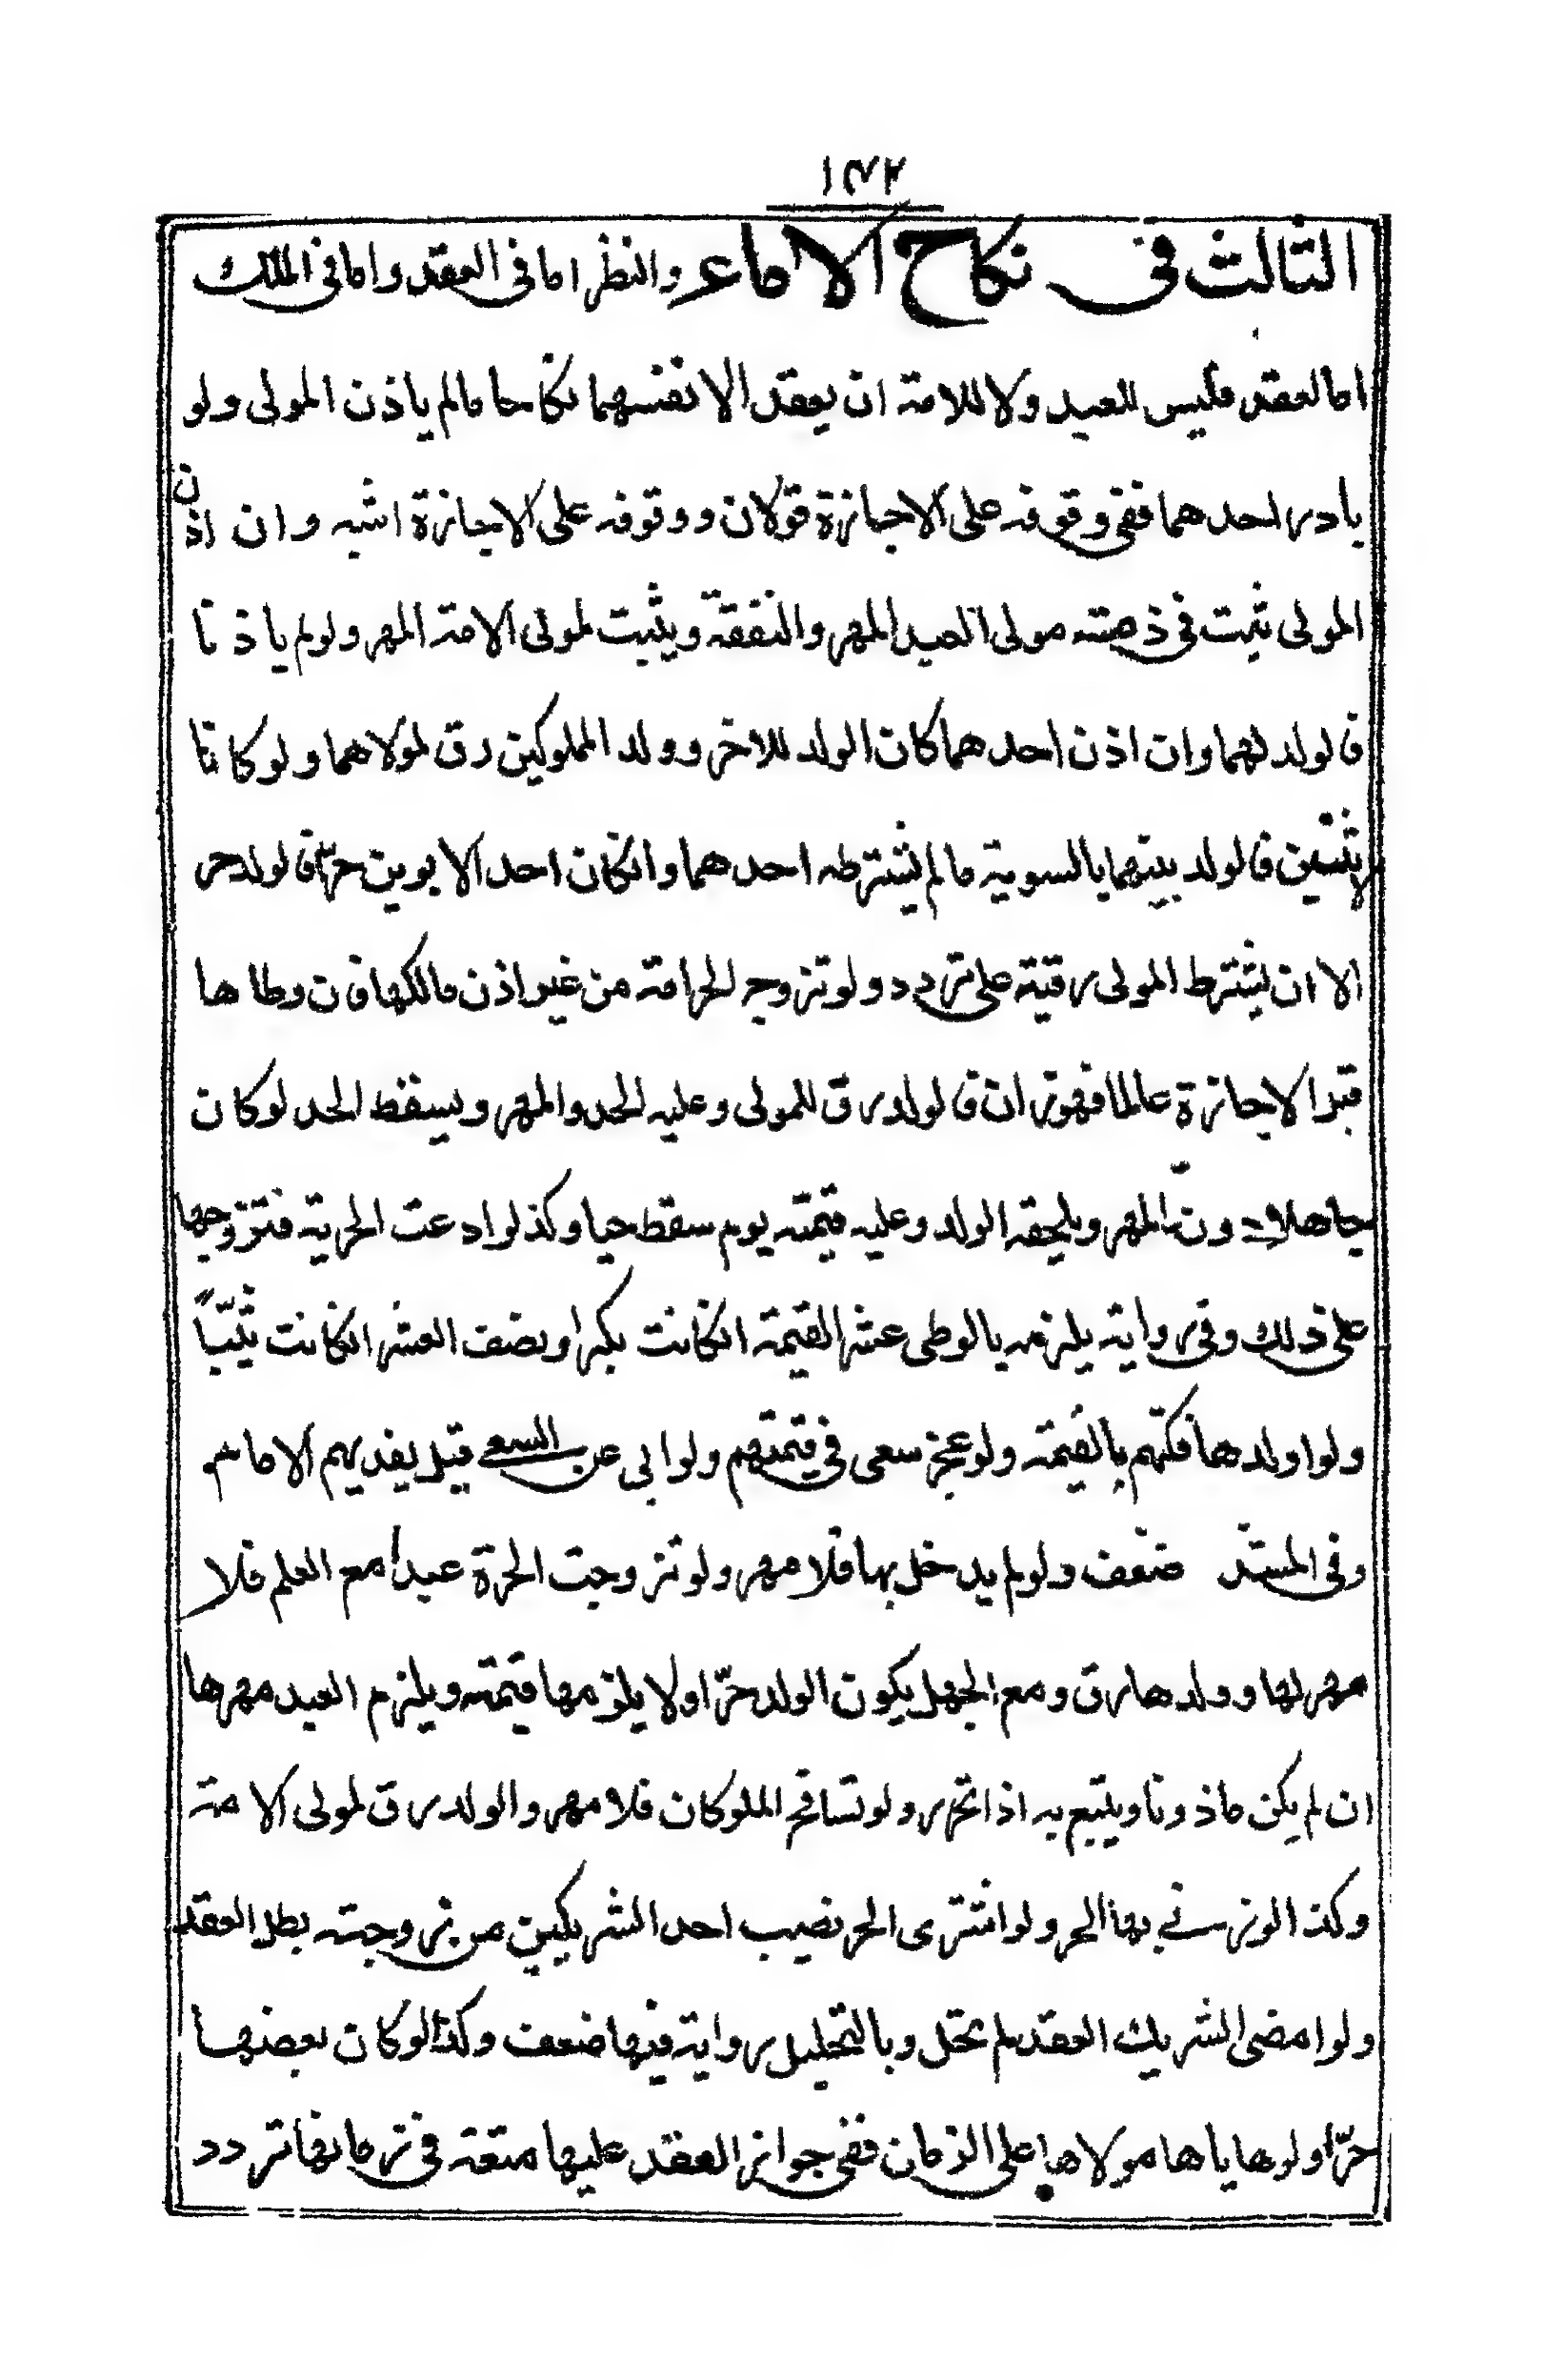 ١٧٢
الثالث فى نكاح الاماء والنظر اما فى العقد واما فى الملك
اما العقد فليس للعبد ولا للامة ان يعقد الانفسهما نكاحا مالم ياذن المولى ولو
بادر احدهما ففى وقوفه على الاجازة قولان ووقوفه على الاجازة اشبه وان اذن
المولى ثبت فى ذمته مولى العبد المهر والنفقة ويثبت لمولى الامة المهر ولو لم ياذنا
فالولد لهما وان اذن احدهما كان الولد للاخر وولد المملوكين رق لمولاهما ولو كانا
لاثنين فالولد بينهما بالسوية مالم يشترطه احدهما وانكان احد الابوين حرّا فالولد حر
الا ان يشترط المولى رقيته على تردد ولو تزوج الحر امة من غير اذن مالكها فان وطاها
قبل الاجازة عالما فهو زان فالولد رق للمولى وعليه الحد والمهر ويسقط الحد لو كان
جاهلا دون المهر ويلحقه الولد وعليه قيمته يوم سقط حيا وكذلو ادعت الحرية فتزوجها
على ذلك وفى رواية يلزمه بالوطى عشر القيمة انكانت بكرا ونصف العشر انكانت ثيّباً
ولو اولدها فكّهم بالقيمة ولو عجز سعى فى قيمتهم ولو ابى عن السعى قيل يفديهم الامام
وفى المستند ضعف ولو لم يدخل بها فلا مهر ولو تزوجت الحرة عبدا مع العلم فلا
مهر لها وولدها رق ومع الجهل يكون الولد حرّا ولا يلزمها قيمته ويلزم العبد مهرها
ان لم يكن ماذونا ويتبع به اذا تحرر ولو تسافح المملوكان فلا مهر والولد رق لمولى الامة
وكذا لو زنى بها الحر ولو اشترى الحر نصيب احد الشريكين من زوجته بطل العقد
ولو امضى الشريك العقد لم تحل وبالتحليل رواية فيها ضعف وكذا لو كان بعضها
حرّا ولو هاياها مولاها على الزمان ففى جواز العقد عليها متعة فى زمانها تردد